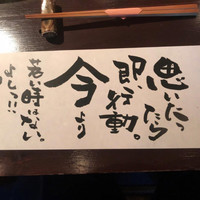 思いたっ
たら
即、行動。
今より
若い時はない。
よしっ!!